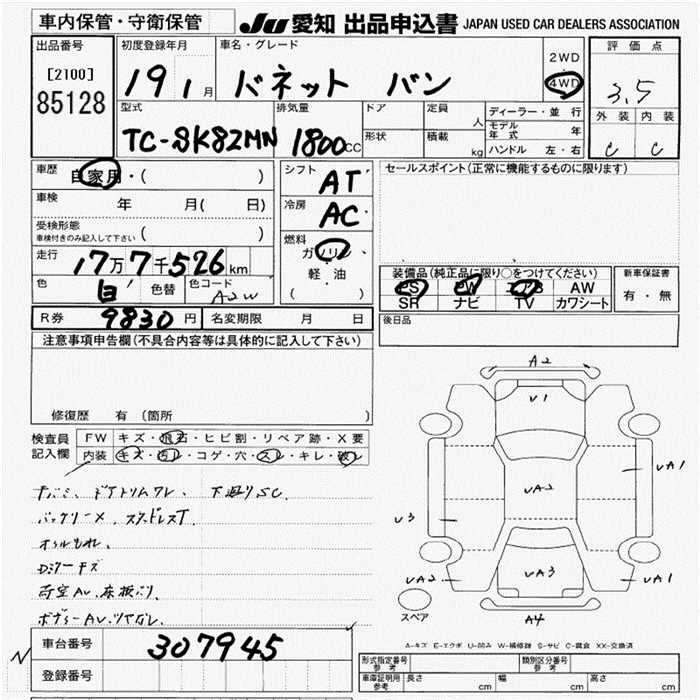 車内保管・守衛保管
JU 愛知 出品申込書 JAPAN USED CAR DEALERS ASSOCIATION
出品番号
[2100]
85128
初度登録年月
19 1月
車名・グレード
バネット バン
2WD
4WD
評価点
3.5
外装 内装
C C
型式
TC-SK82MN
排気量
1800cc
ドア
形状
定員 人
積載 kg
ディーラー・並行
モデル年式 年
ハンドル 左・右
車歴
自家用・( )
車検 年 月( 日)
受検形態
車検付きのみ記入して下さい
走行
17万7千526km
色 白 色替 色コード A2W
シフト AT
冷房 AC
燃料
ガソリン
軽・油
( )
セールスポイント(正常に機能するものに限ります)
装備品(純正品に限り○をつけてください)
PS PW AW
SR ナビ TV カワシート
新車保証書
有・無
R券 9830円 名変期限 月 日
後日品
注意事項申告欄(不具合内容等は具体的に記入して下さい)
修復歴 有(箇所 )
検査員記入欄
FW キズ・飛石・ヒビ割・リペア跡・X要
内装 キズ・汚レ・コゲ・穴・スレ・キレ・破レ
下廻りSC
オイルもれ
A2
U1
UA1
UA2
U3
UA2
UA3
UA1
A4
スペア
A-キズ E-エクボ U-凹み W-補修跡 S-サビ C-腐食 XX-交換済
車台番号 307945
登録番号
形式指定番号 参考
類別区分番号 参考
車庫証明用 参考 長さ cm 幅 cm 高さ cm